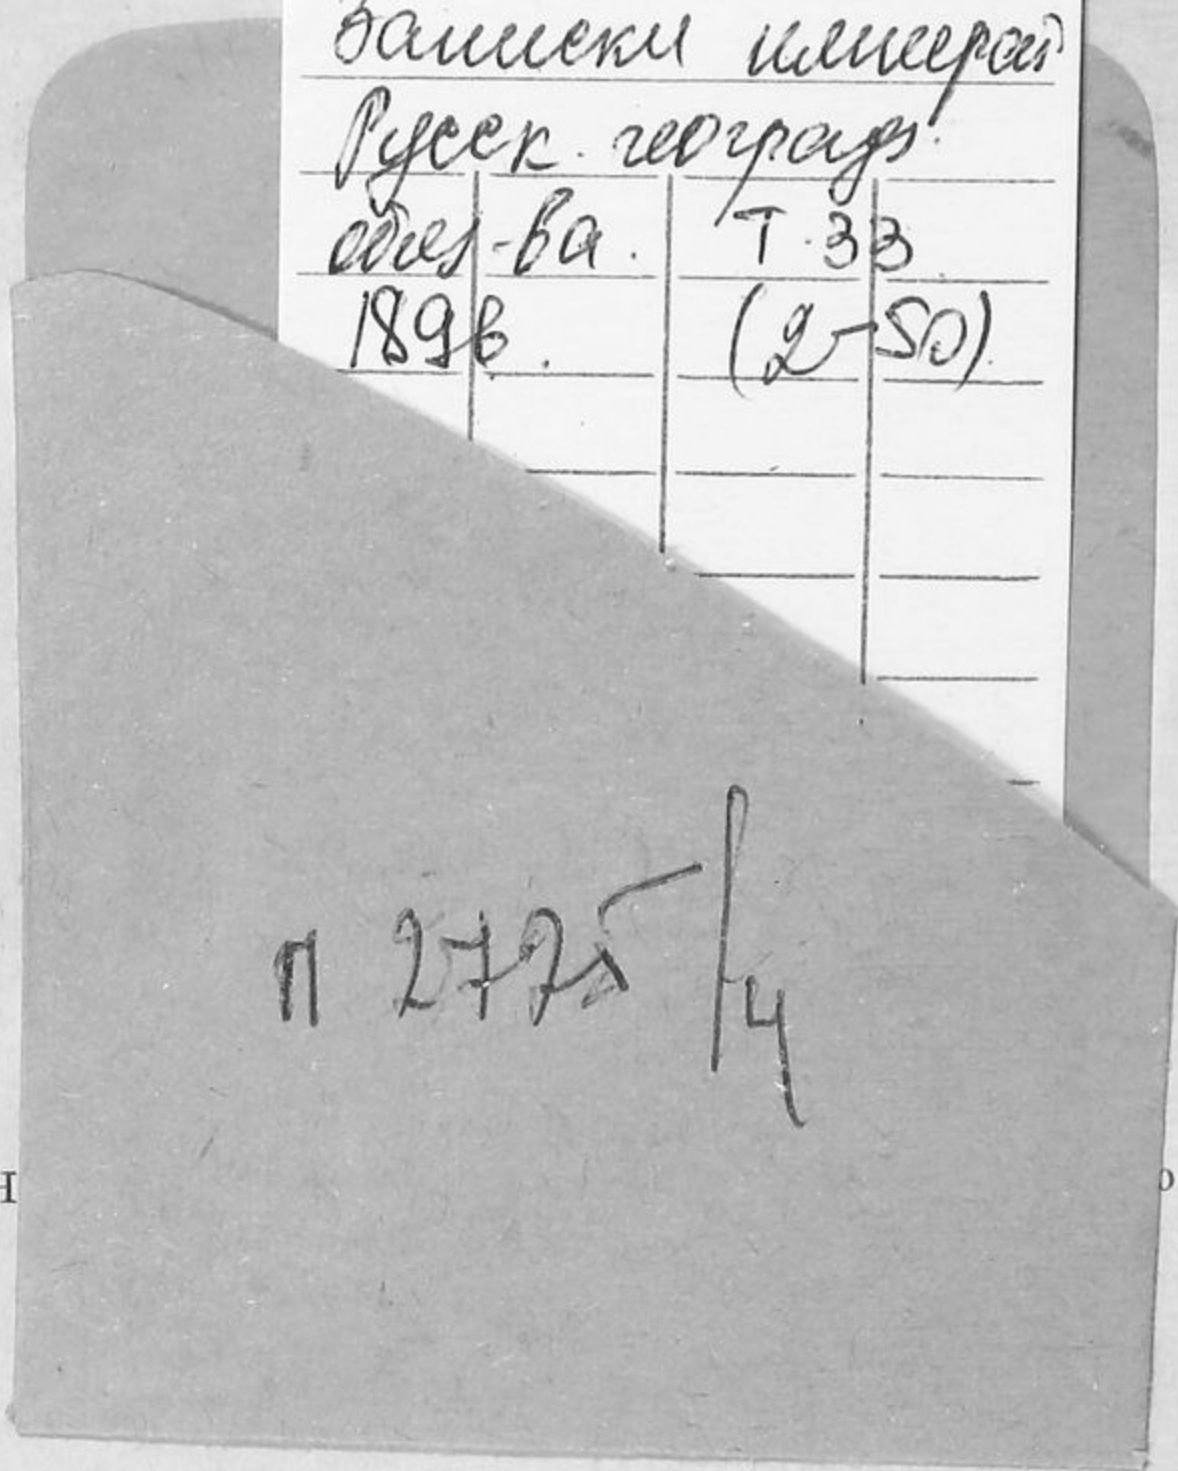 Записки импера
Русск. географ.
общ-ва. Т. 33
1896. (2-50).
п 2775/4